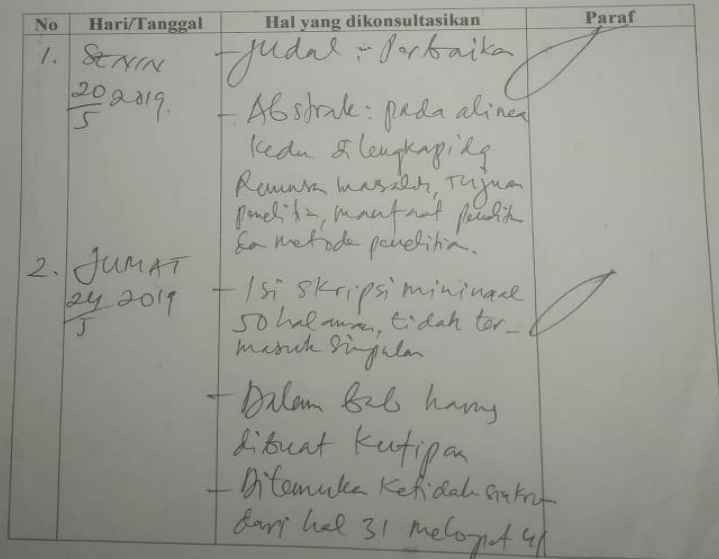 No Hari/Tanggal Hal yang dikonsultasikan Paraf
1. SENIN - Judul : Perbaikan
20/5 2019.
- Abstrak : pada alinea
kedua dilengkapi dg
Rumusan masalah, Tujuan
penelitian, manfaat penelitian
dan metode penelitian.
2. JUMAT
24/5 2019 - Isi skripsi minimal
50 halaman, tidak ter-
masuk simpulan
- Dalam bab harus
dibuat kutipan
- Ditemukan Ketidak sinkron
dari hal 31 melompat 41